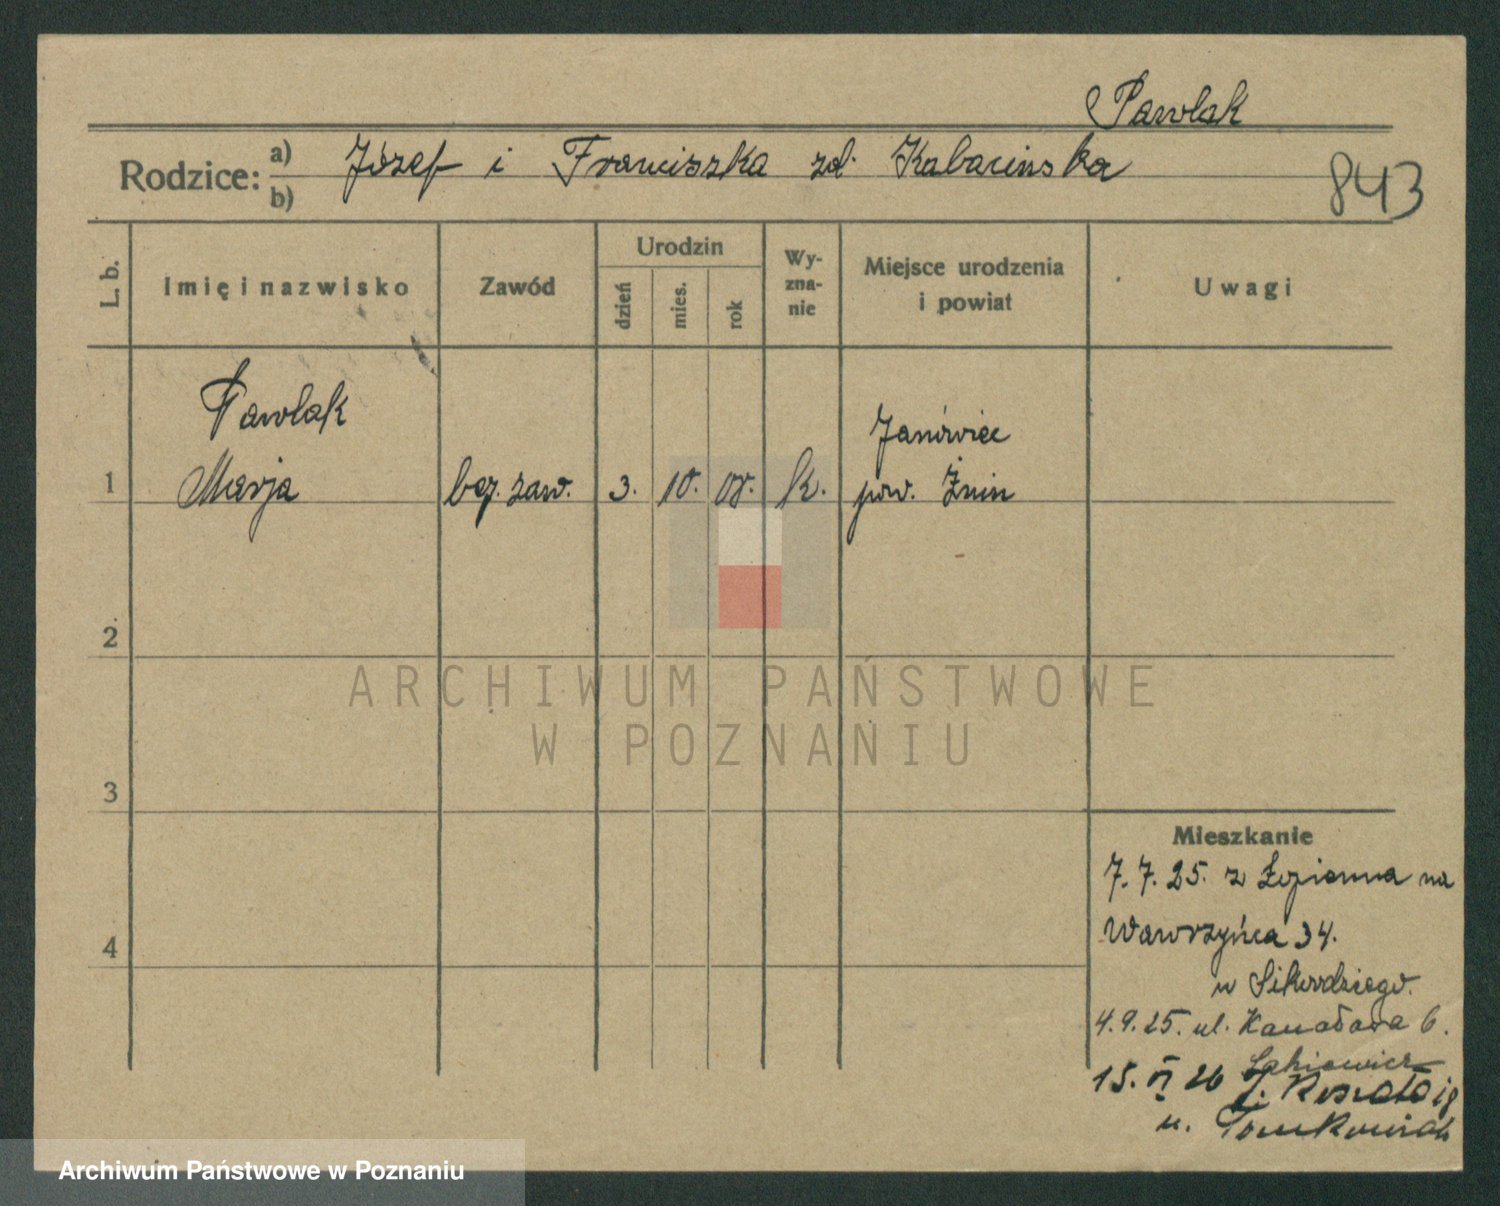 Pawlak
Rodzice: a) Józef i Franciszka zd. Kabacińska
b)
843
L. b.
Imię i nazwisko
Zawód
Urodzin
dzień
mies.
rok
Wy-
zna-
nie
Miejsce urodzenia
i powiat
Uwagi
Pawlak
Janówiec
1 Marja bez. zaw. 3. 10. 08. k. pow. Żnin
2
ARCHIWUM PAŃSTWOWE
W POZNANIU
3
Mieszkanie
7.7.25. z na
Wawrzyńca 34.
u Sikorskiego.
4
4.9.25. ul. Kanałowa 6.
15. VI 26
u. Tomkowiak
Archiwum Państwowe w Poznaniu